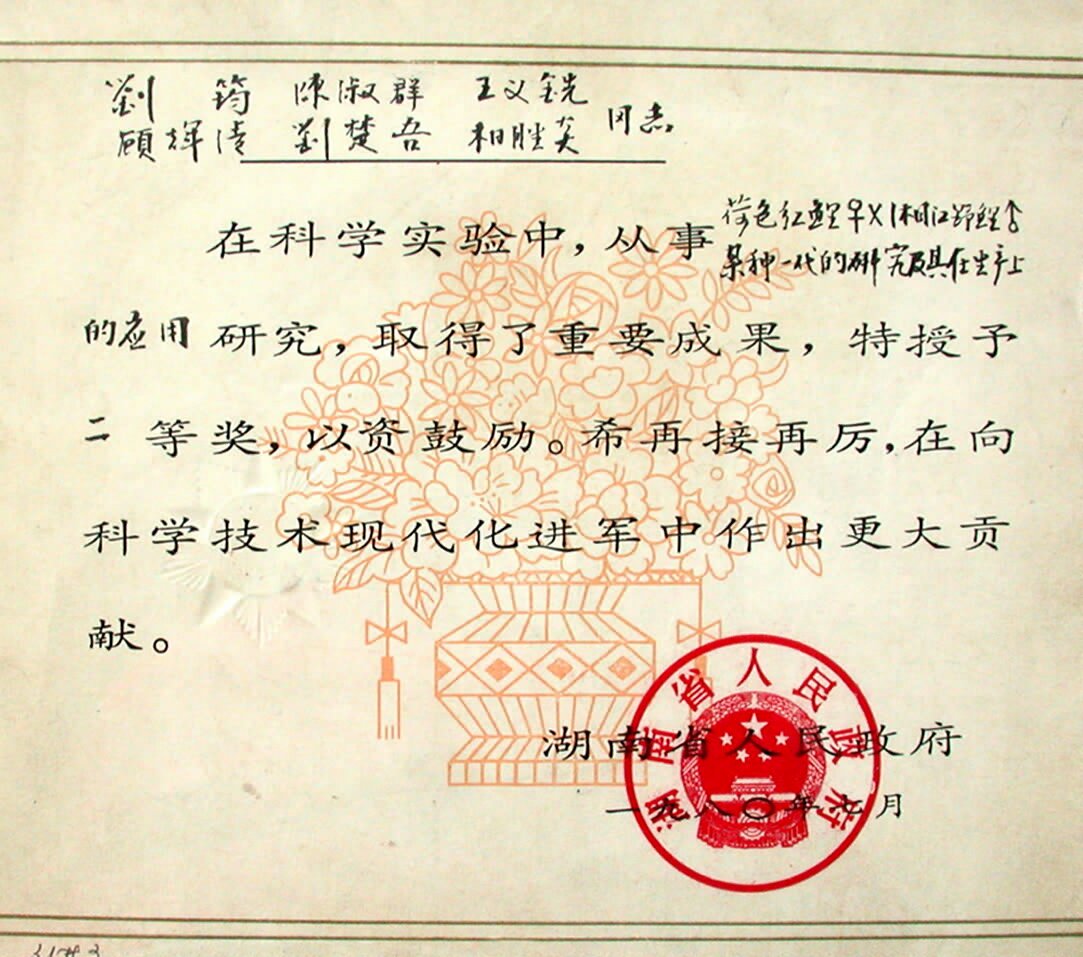 劉 筠 陳淑群 王义銑
顾辉清 劉楚吾 相胜英 同志
在科学实验中，从事 荷包红鲤♀×湘江野鲤♂
杂种一代的研究及其在生产上
的应用 研究，取得了重要成果，特授予
二 等奖，以资鼓励。希再接再厉，在向
科学技术现代化进军中作出更大贡
献。
湖南省人民政府
一九八〇年七月
湖南省人民政府